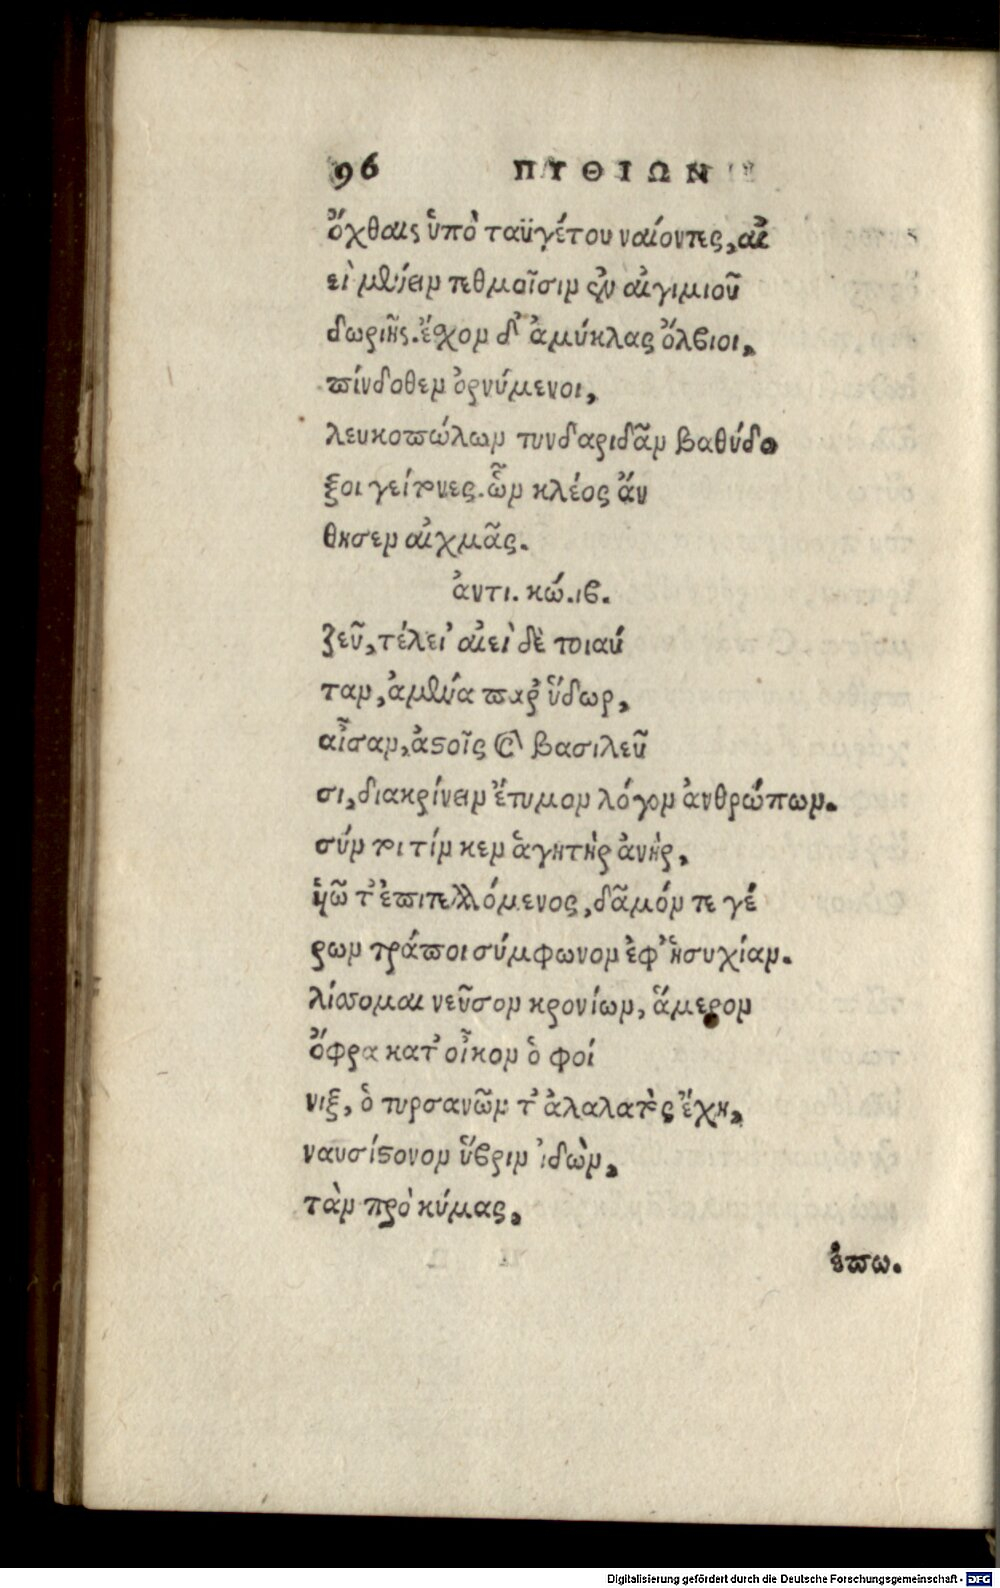 96 ΠΥΘΙΩΝ
ὄχθαις ὑπὸ ταϋγέτου ναίοντες, αἰ
εὶ μένειν τεθμοῖσιν ἐν αἰγιμιοῦ
δωριῆς. ἔχον δ' ἀμύκλας ὄλβιοι,
πίνδοθεν ὀρνύμενοι,
λευκοπώλων τυνδαριδᾶν βαθύδο
ξοι γείτονες. ὧν κλέος ἄν
θησεν αἰχμᾶς.
ἀντι. κώ. ιβ.
ζεῦ, τέλει' αἰεὶ δὲ τοιαύ
ταν, ἀμένα παρ' ὕδωρ,
αἶσαν, ἀστοῖς καὶ βασιλεῦ
σι, διακρίνειν ἔτυμον λόγον ἀνθρώπων.
σύν τοι τίν κεν ἁγητὴρ ἀνὴρ,
ὑῷ τ' ἐπιτελλόμενος, δᾶμόν τε γέ
ρων τράποι σύμφωνον ἐφ' ἡσυχίαν.
λίσσομαι νεῦσον κρονίων, ἅμερον
ὄφρα κατ' οἶκον ὁ φοί
νιξ, ὁ τυρσανῶν τ' ἀλαλατὸς ἔχῃ,
ναυσίστονον ὕβριν ἰδὼν,
τὰν πρὸ κύμας,
Digitalisierung gefördert durch die Deutsche Forschungsgemeinschaft - DFG